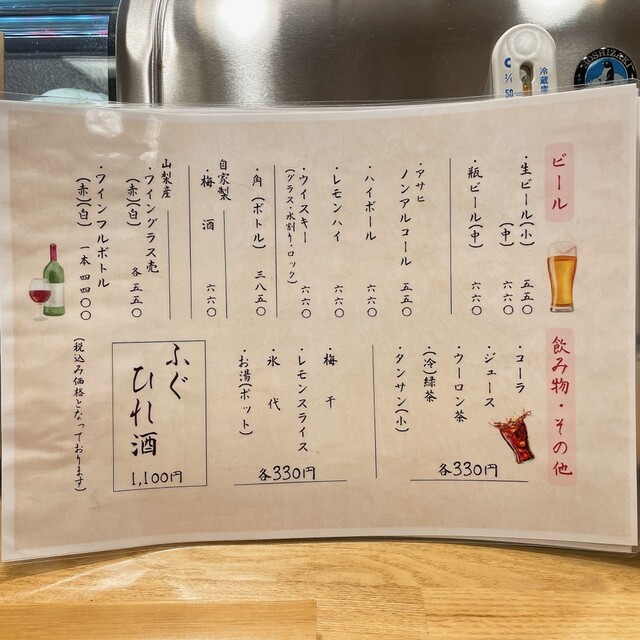 ビール
・生ビール(小) 五五〇
(中) 六六〇
・瓶ビール(中) 六六〇
・アサヒ
ノンアルコール 五五〇
・ハイボール 六六〇
・レモンハイ 六六〇
・ウイスキー 六六〇
(グラス・水割り・ロック)
・角(ボトル) 三八五〇
自家製
・梅酒 六六〇
山梨産
・ワイングラス売
(赤)(白) 各五五〇
・ワインフルボトル
(赤)(白) 一本四四〇〇
飲み物・その他
・コーラ
・ジュース
・ウーロン茶
・(冷)緑茶
・タンサン(小)
各330円
・梅干
・レモンスライス
・氷代
・お湯(ポット)
各330円
ふぐ
ひれ酒
1,100円
(税込み価格となっております)
HOSHIZAKI